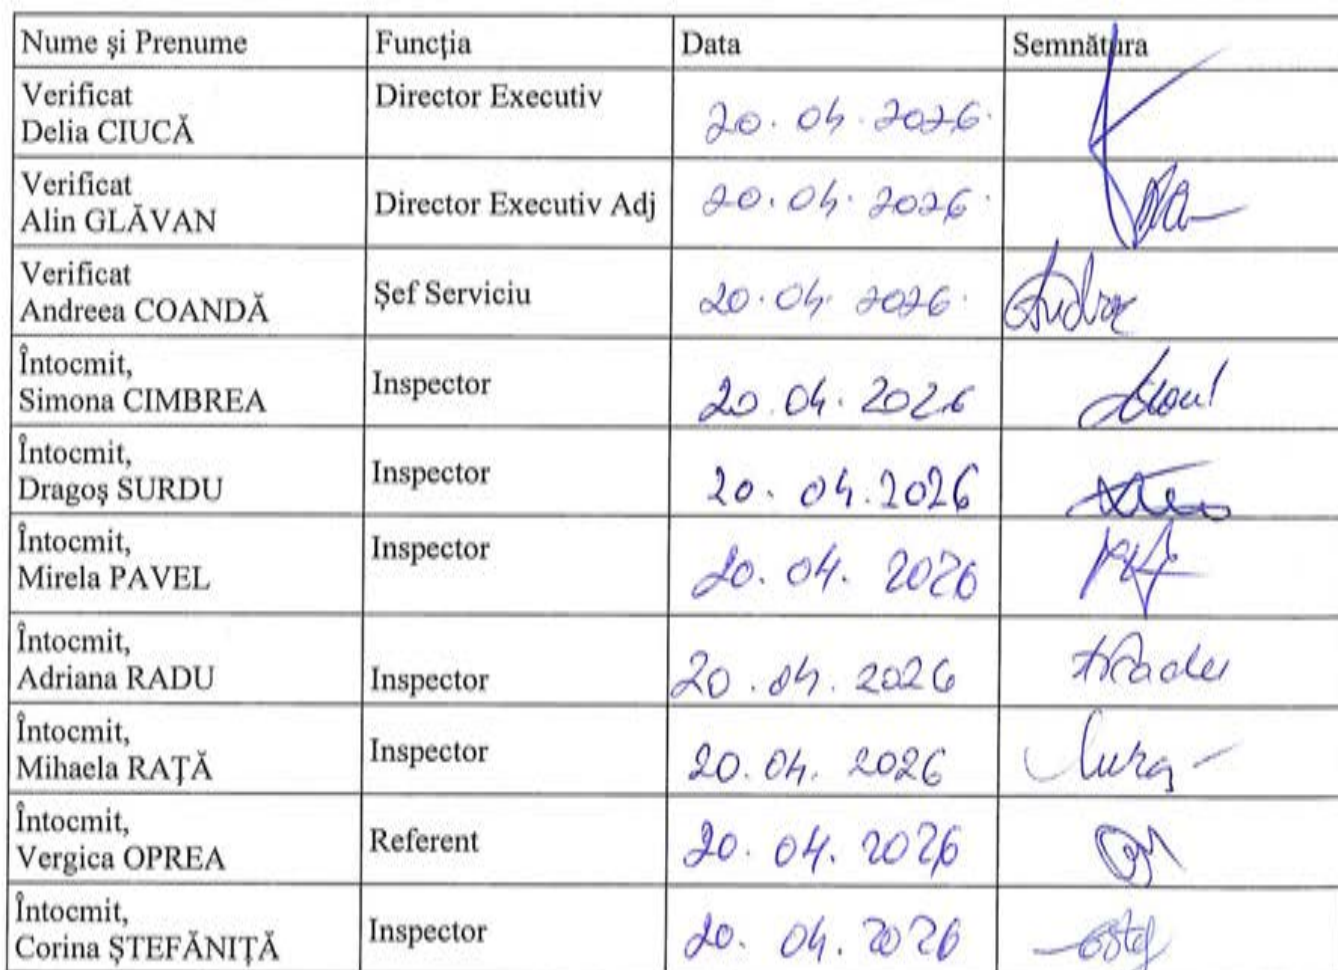 Nume și Prenume Funcția Data Semnătura
Verificat
Delia CIUCĂ Director Executiv 20.04.2026
Verificat
Alin GLĂVAN Director Executiv Adj 20.04.2026
Verificat
Andreea COANDĂ Șef Serviciu 20.04.2026
Întocmit,
Simona CIMBREA Inspector 20.04.2026
Întocmit,
Dragoș SURDU Inspector 20.04.2026
Întocmit,
Mirela PAVEL Inspector 20.04.2026
Întocmit,
Adriana RADU Inspector 20.04.2026 ARadu
Întocmit,
Mihaela RAȚĂ Inspector 20.04.2026
Întocmit,
Vergica OPREA Referent 20.04.2026
Întocmit,
Corina ȘTEFĂNIȚĂ Inspector 20.04.2026